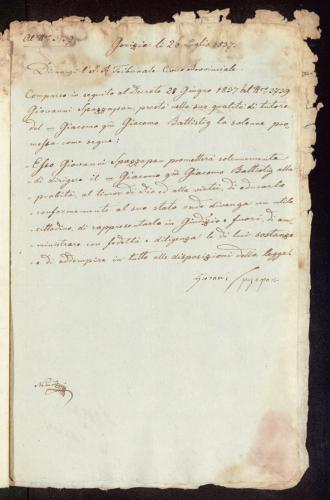 Al N.º 3739
Gorizia li 20 Luglio 1837.
Dinanzi l'I. R. Tribunale Civico Provinciale
Comparso in seguito al Decreto 28 Giugno 1837 al N.º 3739
Giovanni Spazzapan, prestò nella sua qualità di tutore
del Giacomo qm Giacomo Battistig la solenne pro
messa come segue:
Esso Giovanni Spazzapan promette solennemente
di dirigere il Giacomo qm Giacomo Battistig alla
probità, al timor di Dio ed alla virtù, di educarlo
conformemente al suo stato onde divenga un utile
cittadino, di rappresentarlo in Giudizio e fuori, di am
ministrare con fedeltà e diligenza le di lui sostanze
e di adempire in tutto alle disposizioni della Legge.
Giovani Spazapan